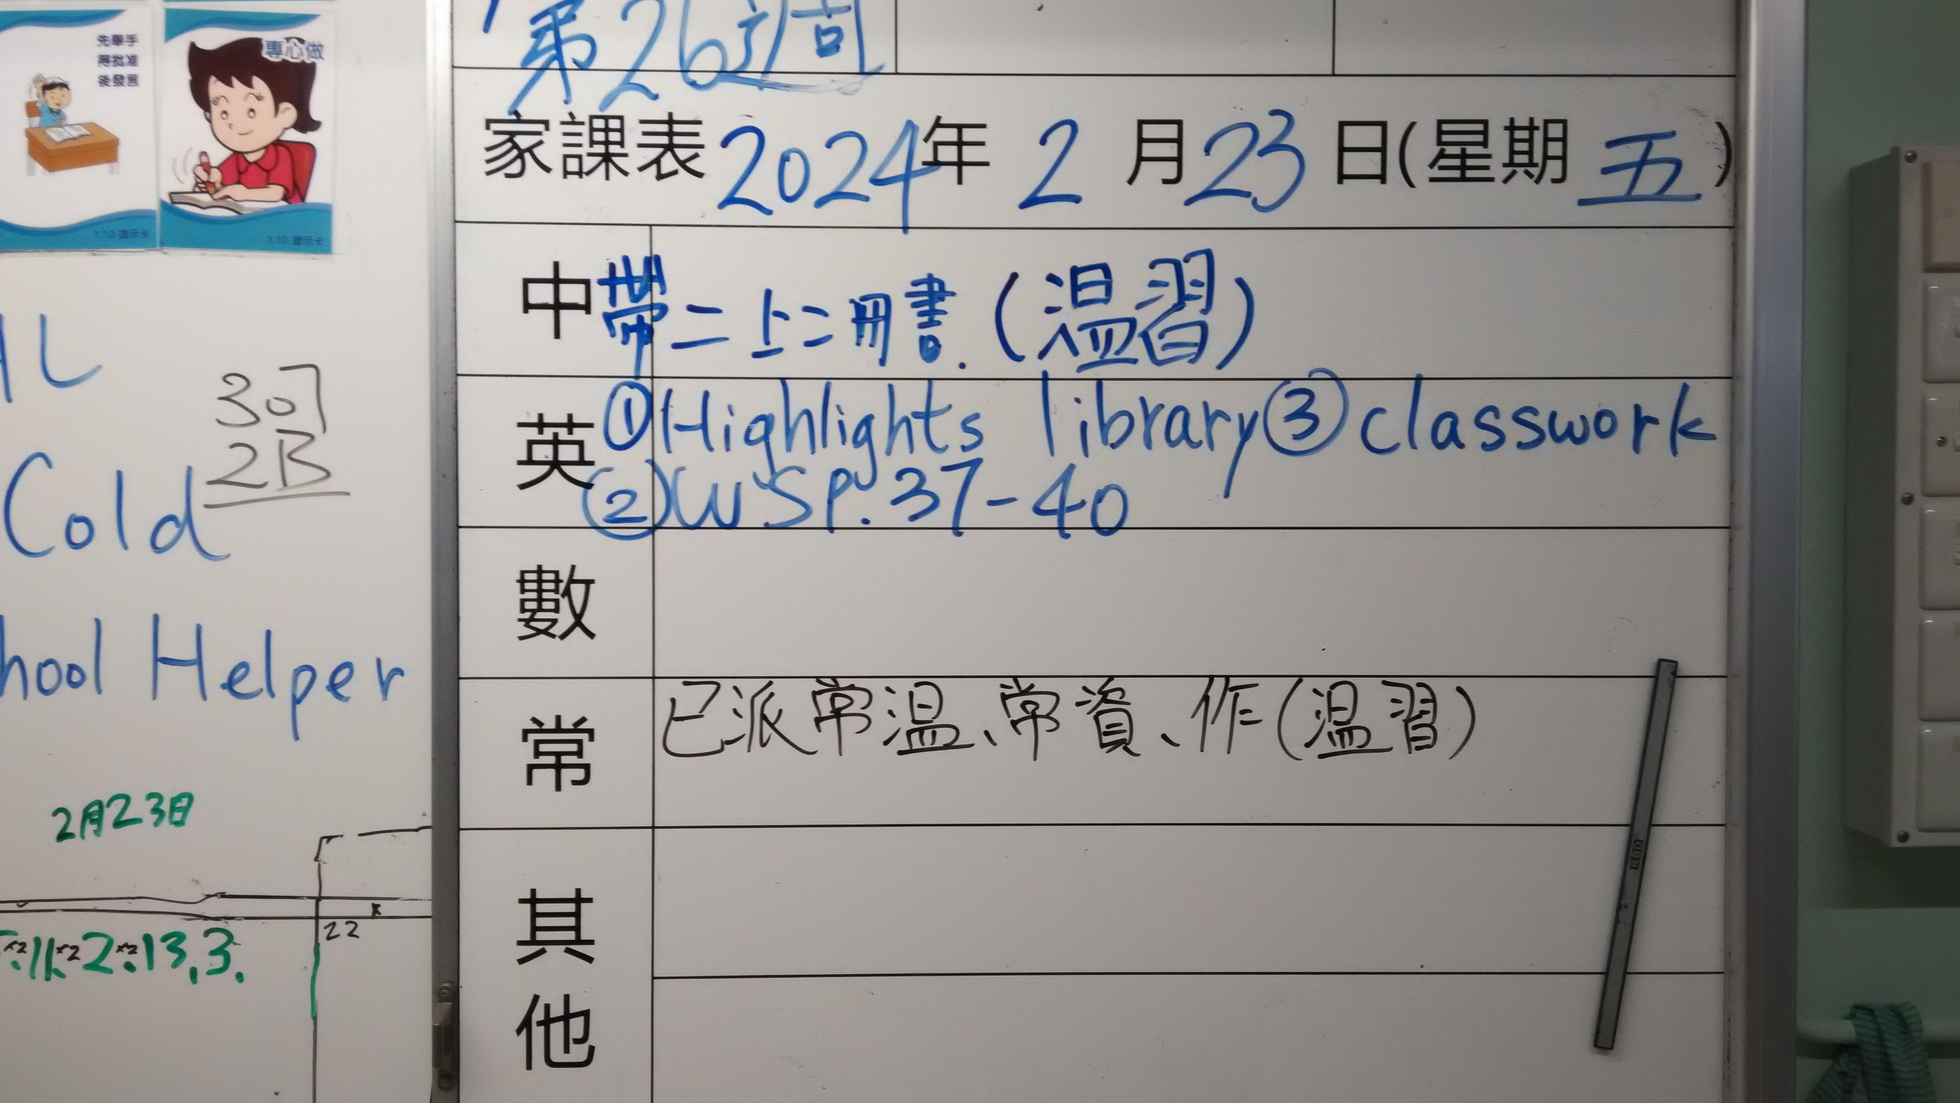 先舉手
得批准
後發言
專心做
1.10 提示卡
1.10 提示卡
30
2B
Cold
hool Helper
2月23日
22
第26週
家課表 2024年 2 月 23 日(星期 五 )
中 帶二上二冊書.(温習)
英 ①Highlights library ③classwork
②WS P.37-40
數
常 已派常温、常資、作(温習)
其
他